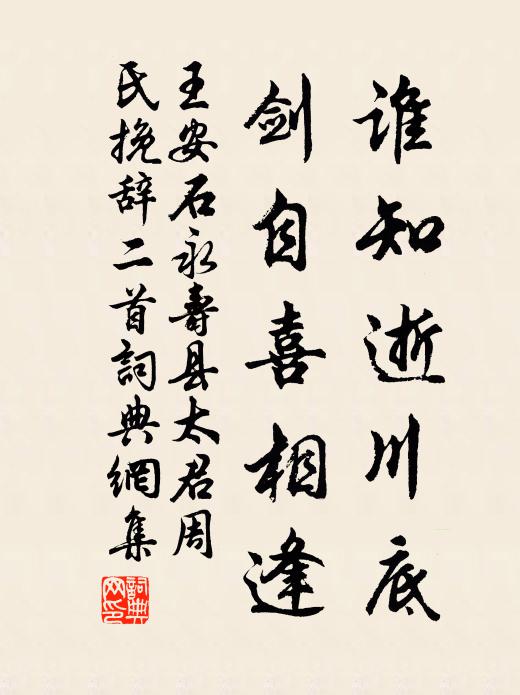 谁知逝川底
剑自喜相逢
王安石永寿县太君周
氏挽辞二首詞典網集
詞典網印